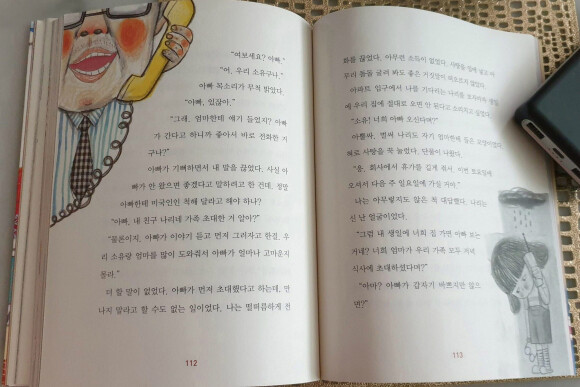 "여보세요? 아빠."
"어, 우리 소유구나."
아빠 목소리가 무척 밝았다.
"아빠, 있잖아."
"그래, 엄마한테 얘기 들었지? 아빠
가 간다고 하니까 좋아서 바로 전화한 거
구나?"
아빠가 기뻐하면서 내 말을 끊었다. 사실 아
빠가 안 왔으면 좋겠다고 말하려고 한 건데. 정말
아빠한테 미국인인 척해 달라고 해야 하나?
"아빠, 내 친구 나리네 가족 초대한 거 알아?"
"물론이지. 아빠가 이야기 듣고 먼저 그러자고 한걸. 우
리 소유랑 엄마를 많이 도와줘서 아빠가 얼마나 고마운지
몰라."
더 할 말이 없었다. 아빠가 먼저 초대했다고 하는데, 만
나지 말라고 할 수도 없는 일이었다. 나는 떨떠름하게 전
112
화를 끊었다. 아무런 소득이 없었다. 사탕을 입에 넣고 아
무리 돌돌 굴려 봐도 좋은 거짓말이 떠오르지 않았다.
아파트 입구에서 나를 기다리는 나리를
에 우리 집에 절대로 오면 안 된다고 소리치고 싶었다.
"소유! 너희 아빠 오신다며?"
아뿔싸, 벌써 나리도 자기 엄마한테 들은
해로 사탕을 꽉 눌렀다. 단물이 나왔다.
"응. 회사에서 휴가를 길게 줘서, 이번 토요일에
오셔서 다음 주 일요일에 가실 거야."
나는 아무렇지도 않은 척 대답했다. 나리는
신 난 얼굴이었다.
"그럼 내 생일에 너희 집 가면 아빠 보는
거네? 너희 엄마가 우리 가족 모두 저녁
식사에 초대하셨다며?"
"아마? 아빠가 갑자기 바쁘지만 않으
면?"
113